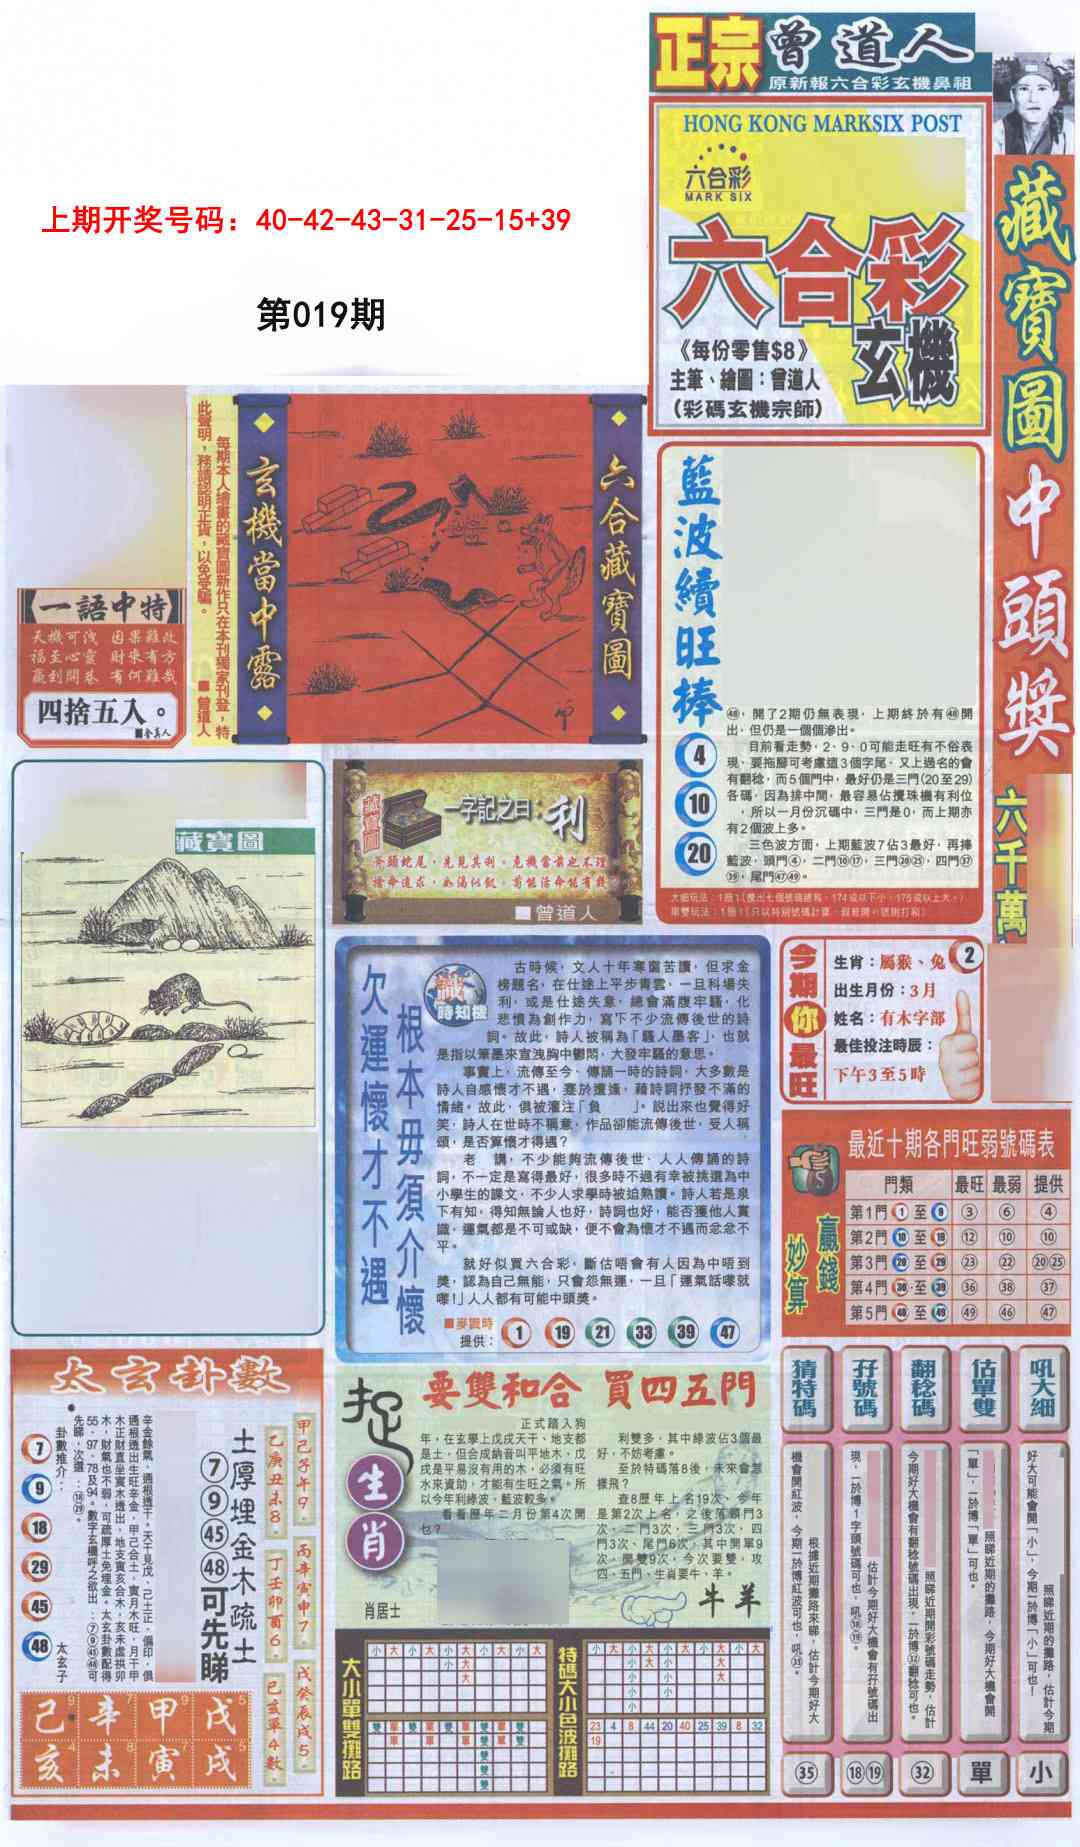 正宗曾道人
原新報六合彩玄機鼻祖
HONG KONG MARKSIX POST
六合彩
MARK SIX
六合彩
玄機
《每份零售$8》
主筆、繪圖：曾道人
（彩碼玄機宗師）
藏寶圖中頭獎
六千萬
上期开奖号码：40-42-43-31-25-15+39
第019期
每期本人繪畫的藏寶圖新作只在本刊獨家刊登，特
此聲明，務請認明正貨，以免受騙。
■曾道人
玄機當中露
六合藏寶圖
一語中特
天機可洩 因果難改
福至心靈 財來有方
贏到開巷 有何難哉
四捨五入。
藍波續旺棒
4
10
20
㊽，開了2期仍無表現，上期終於有㊽開
出，但仍是一個個滲出。
目前看走勢，2、9、0可能走旺有不俗表
現，要拖腳可考慮這3個字尾，又上過名的會
有翻稔，而5個門中，最好仍是三門(20至29)
各碼，因為排中間，最容易佔攪珠機有利位
，所以一月份沉碼中，三門是0，而上期亦
有2個波上多。
三色波方面，上期藍波7佔3最好，再捧
藍波，頭門④，二門⑩⑰，三門⑳㉕，四門㊲
㊴，尾門㊼㊾。
藏寶圖
一字記之曰：利
斧頭蛇尾，先見其利。危機當前也不理
捨命追求，如渴似飢。
■曾道人
今期你最旺
2
生肖：屬猴、兔
出生月份：3月
姓名：有木字部
最佳投注時辰：
下午3至5時
欠運懷才不遇
根本毋須介懷
識時知機
古時候，文人十年寒窗苦讀，但求金
榜題名，在仕途上平步青雲，一旦科場失
利，或是仕途失意，總會滿腹牢騷，化
悲憤為創作力，寫下不少流傳後世的詩
詞。故此，詩人被稱為「騷人墨客」，也就
是指以筆墨來宣洩胸中鬱悶，大發牢騷的意思。
事實上，流傳至今，傳誦一時的詩詞，大多數是
詩人自感懷才不遇，蹇於遭逢，藉詩詞抒發不滿的
情緒。故此，俱被灌注「負 」。說出來也覺得好
笑，詩人在世時不稱意，作品卻能流傳後世，受人稱
頌，是否算懷才得遇？
老 講，不少能夠流傳後世、人人傳誦的詩
詞，不一定是寫得最好，很多時不過有幸被挑選為中
小學生的課文，不少人求學時被迫熟讀。詩人若是泉
下有知，得知無論人也好，詩詞也好，能否獲他人賞
識，運氣都是不可或缺，便不會為懷才不遇而忿忿不
平。
就好似買六合彩，斷估唔會有人因為中唔到
獎，認為自己無能，只會怨無運，一旦「運氣話嚟就
嚟！」人人都有可能中頭獎。
■麥實時
提供：
1 19 21 33 39 47
贏錢妙算
最近十期各門旺弱號碼表
門類 最旺 最弱 提供
第1門 1 至 9 ③ ⑥ ④
第2門 10 至 19 ⑫ ⑩ ⑩
第3門 20 至 29 ㉓ ㉒ ⑳㉕
第4門 30 至 39 ㊱ ㊳ ㊲
第5門 40 至 49 ㊾ ㊻ ㊼
太玄卦數
甲己子午9。
乙庚丑未8。
丙辛寅申7。
丁壬卯酉6。
戊癸辰戌5。
己亥單4數。
土厚埋金木疏土
⑦⑨㊺㊽可先睇
辛金餘氣，通根透干。天干見戊、己土正、偏印，俱
通根透出生旺辛金，甲己合土，寅月木旺，月干甲
木正財直坐寅木透出，地支寅亥合木，亥未虛拱卯
木，財氣也不弱，可疏厚土免埋金。太玄卦數配得
55、97、78及94。數字玄機呼之欲出：⑦⑨㊺㊽可
先睇，次選：⑱㉙。
卦數推介：
7
9
18
29
45
48
太玄子
己 辛 甲 戊
亥 未 寅 戌
捉生肖
要雙和合 買四五門
正式踏入狗
年，在玄學上戊戌天干、地支都
是土，但合成納音叫平地木，戊
戌是平易沒有用的木，必須有旺
水來資助，才能有生旺之氣。所
以今年利綠波，藍波較多。
看看歷年二月份第4次開
乜？
肖居士
利雙多，其中綠波佔3個最
好，不妨考慮。
至於特碼落8後，未來會怎
樣飛？
查8歷年上名19次，今年
是第2次上名，之後落頭門3
次、二門3次、三門3次、四
門3次、尾門6次，其中開單9
次，開雙9次，今次要雙，攻
四、五門、生肖要牛、羊。
牛羊
大小單雙攤路
特碼大小色波攤路
23 4 8 44 20 40 25 39 8 32
19
猜特碼
根據近期攤路來睇，估計今期好大
機會開紅波，今期一於博紅波可也，吼㉟。
㉟
孖號碼
估計今期好大機會有孖號碼出
現，一於博1字頭號碼可也，吼⑱⑲。
⑱⑲
翻稔碼
照睇近期開彩號碼走勢，估計
今期好大機會有翻稔號碼出現，一於博㉜翻稔可也。
㉜
估單雙
照睇近期的攤路，今期好大機會開
「單」，一於博「單」可也。
單
吼大細
照睇近期的攤路，估計今期
好大可能會開「小」，今期一於博「小」可也！
小